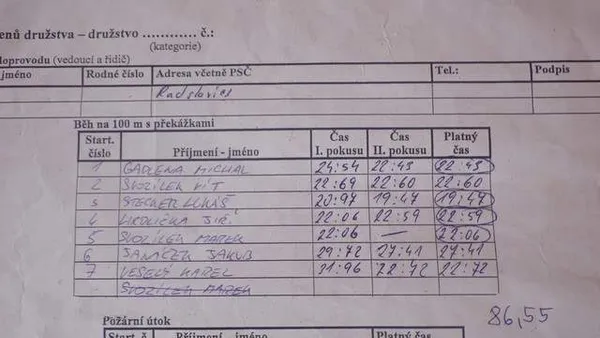 enů družstva – družstvo ………… č.:
(kategorie)
doprovodu (vedoucí a řidič)
jméno Rodné číslo Adresa včetně PSČ Tel.: Podpis
Radslavice
Běh na 100 m s překážkami
Start. číslo Příjmení - jméno Čas I. pokusu Čas II. pokusu Platný čas
1 GADLENA MICHAL 24:54 22:43 22:43
2 SVOZÍLEK VÍT 22:69 22:60 22:60
3 STECKER LUKÁŠ 20:97 19:47 19:47
4 JIŘÍ 22:06 22:59 22:59
5 SVOZÍLEK MAREK 22:06 — 22:06
6 JANÍČEK JAKUB 29:72 27:41 27:41
7 VESELÝ KAREL 31:96 22:72 22:72
SVOZÍLEK MAREK
86,55
Požární útok
Start. č Příjmení - jméno Platný čas